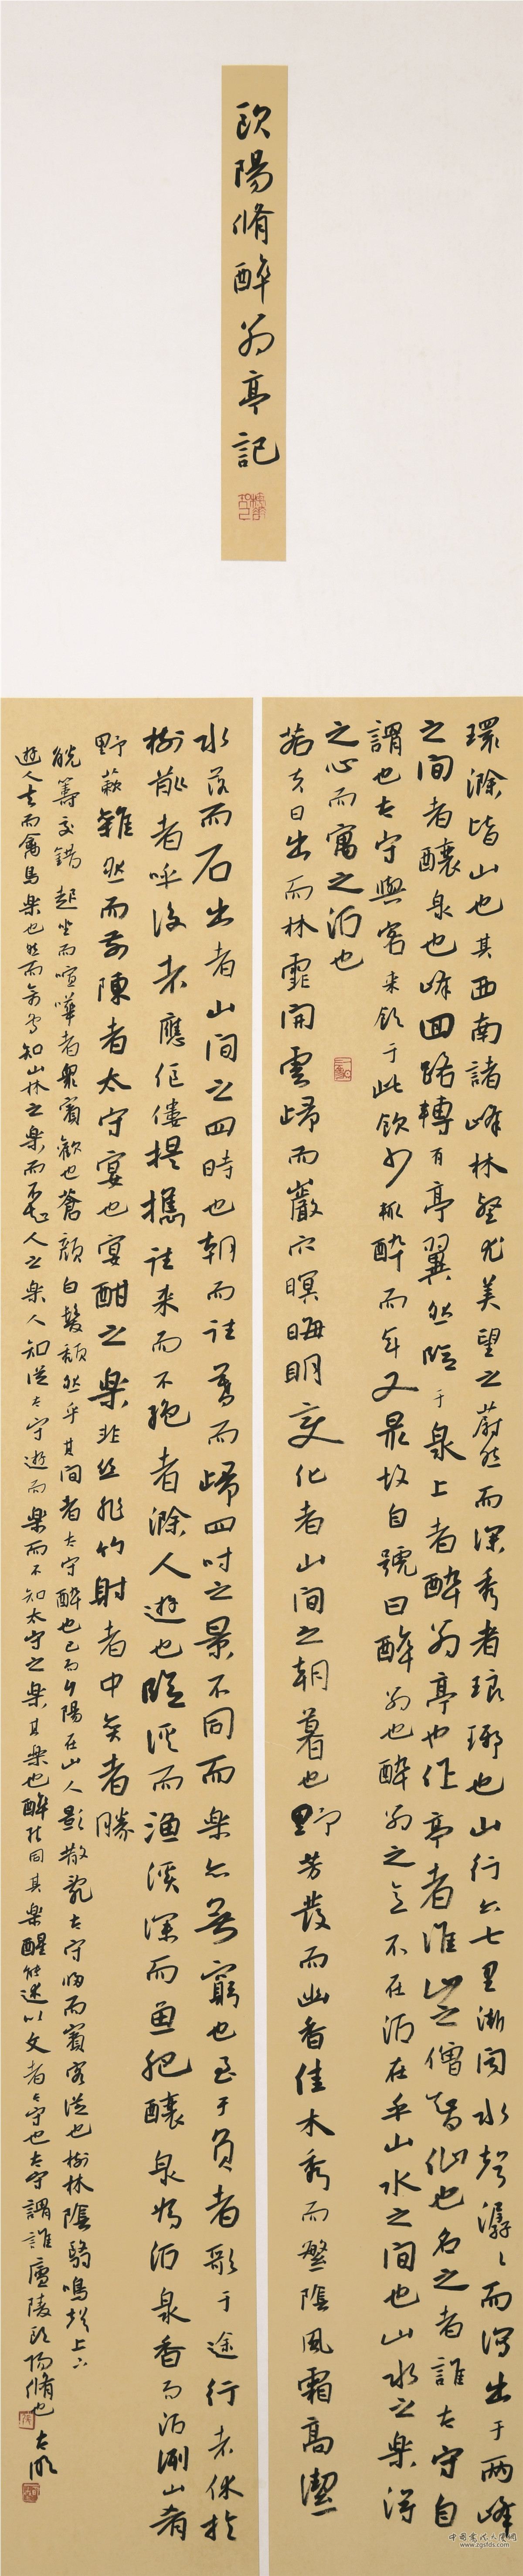 歐陽脩醉翁亭記
環滁皆山也其西南諸峰林壑尤美望之蔚然而深秀者琅琊也山行六七里漸聞水聲潺〻而瀉出于兩峰
之間者釀泉也峰回路轉有亭翼然臨于泉上者醉翁亭也作亭者誰山之僧智仙也名之者誰太守自
謂也太守與客來飲于此飲少輒醉而年又最故自號曰醉翁也醉翁之意不在酒在乎山水之間也山水之樂得
之心而寓之酒也
若夫日出而林霏開雲歸而巖穴暝晦明變化者山間之朝暮也野芳發而幽香佳木秀而繁陰風霜高潔
水落而石出者山間之四時也朝而往暮而歸四時之景不同而樂亦無窮也至于負者歌于途行者休於
樹前者呼後者應伛僂提攜往來而不絕者滁人遊也臨溪而漁溪深而魚肥釀泉為酒泉香而酒洌山肴
野蔌雜然而前陳者太守宴也宴酣之樂非丝非竹射者中弈者勝
觥籌交錯起坐而喧嘩者眾賓歡也蒼顏白髮頹然乎其間者太守醉也已而夕陽在山人影散亂太守歸而賓客從也樹林陰翳鳴聲上下
遊人去而禽鳥樂也然而禽鳥知山林之樂而不知人之樂人知從太守遊而樂而不知太守之樂其樂也醉能同其樂醒能述以文者太守也太守謂誰廬陵歐陽脩也
www.zgsfds.com